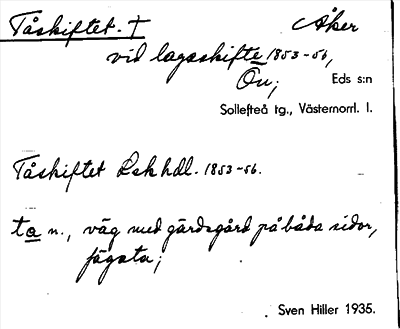 Tåskiftet. † Åker
vid lagaskifte 1853-56,
Ön; Eds s:n
Sollefteå tg., Västernorrl. l.
Tåskiftet Lskhdl. 1853-56.
ta n., väg med gärdsgård på båda sidor,
fägata;
Sven Hiller 1935.